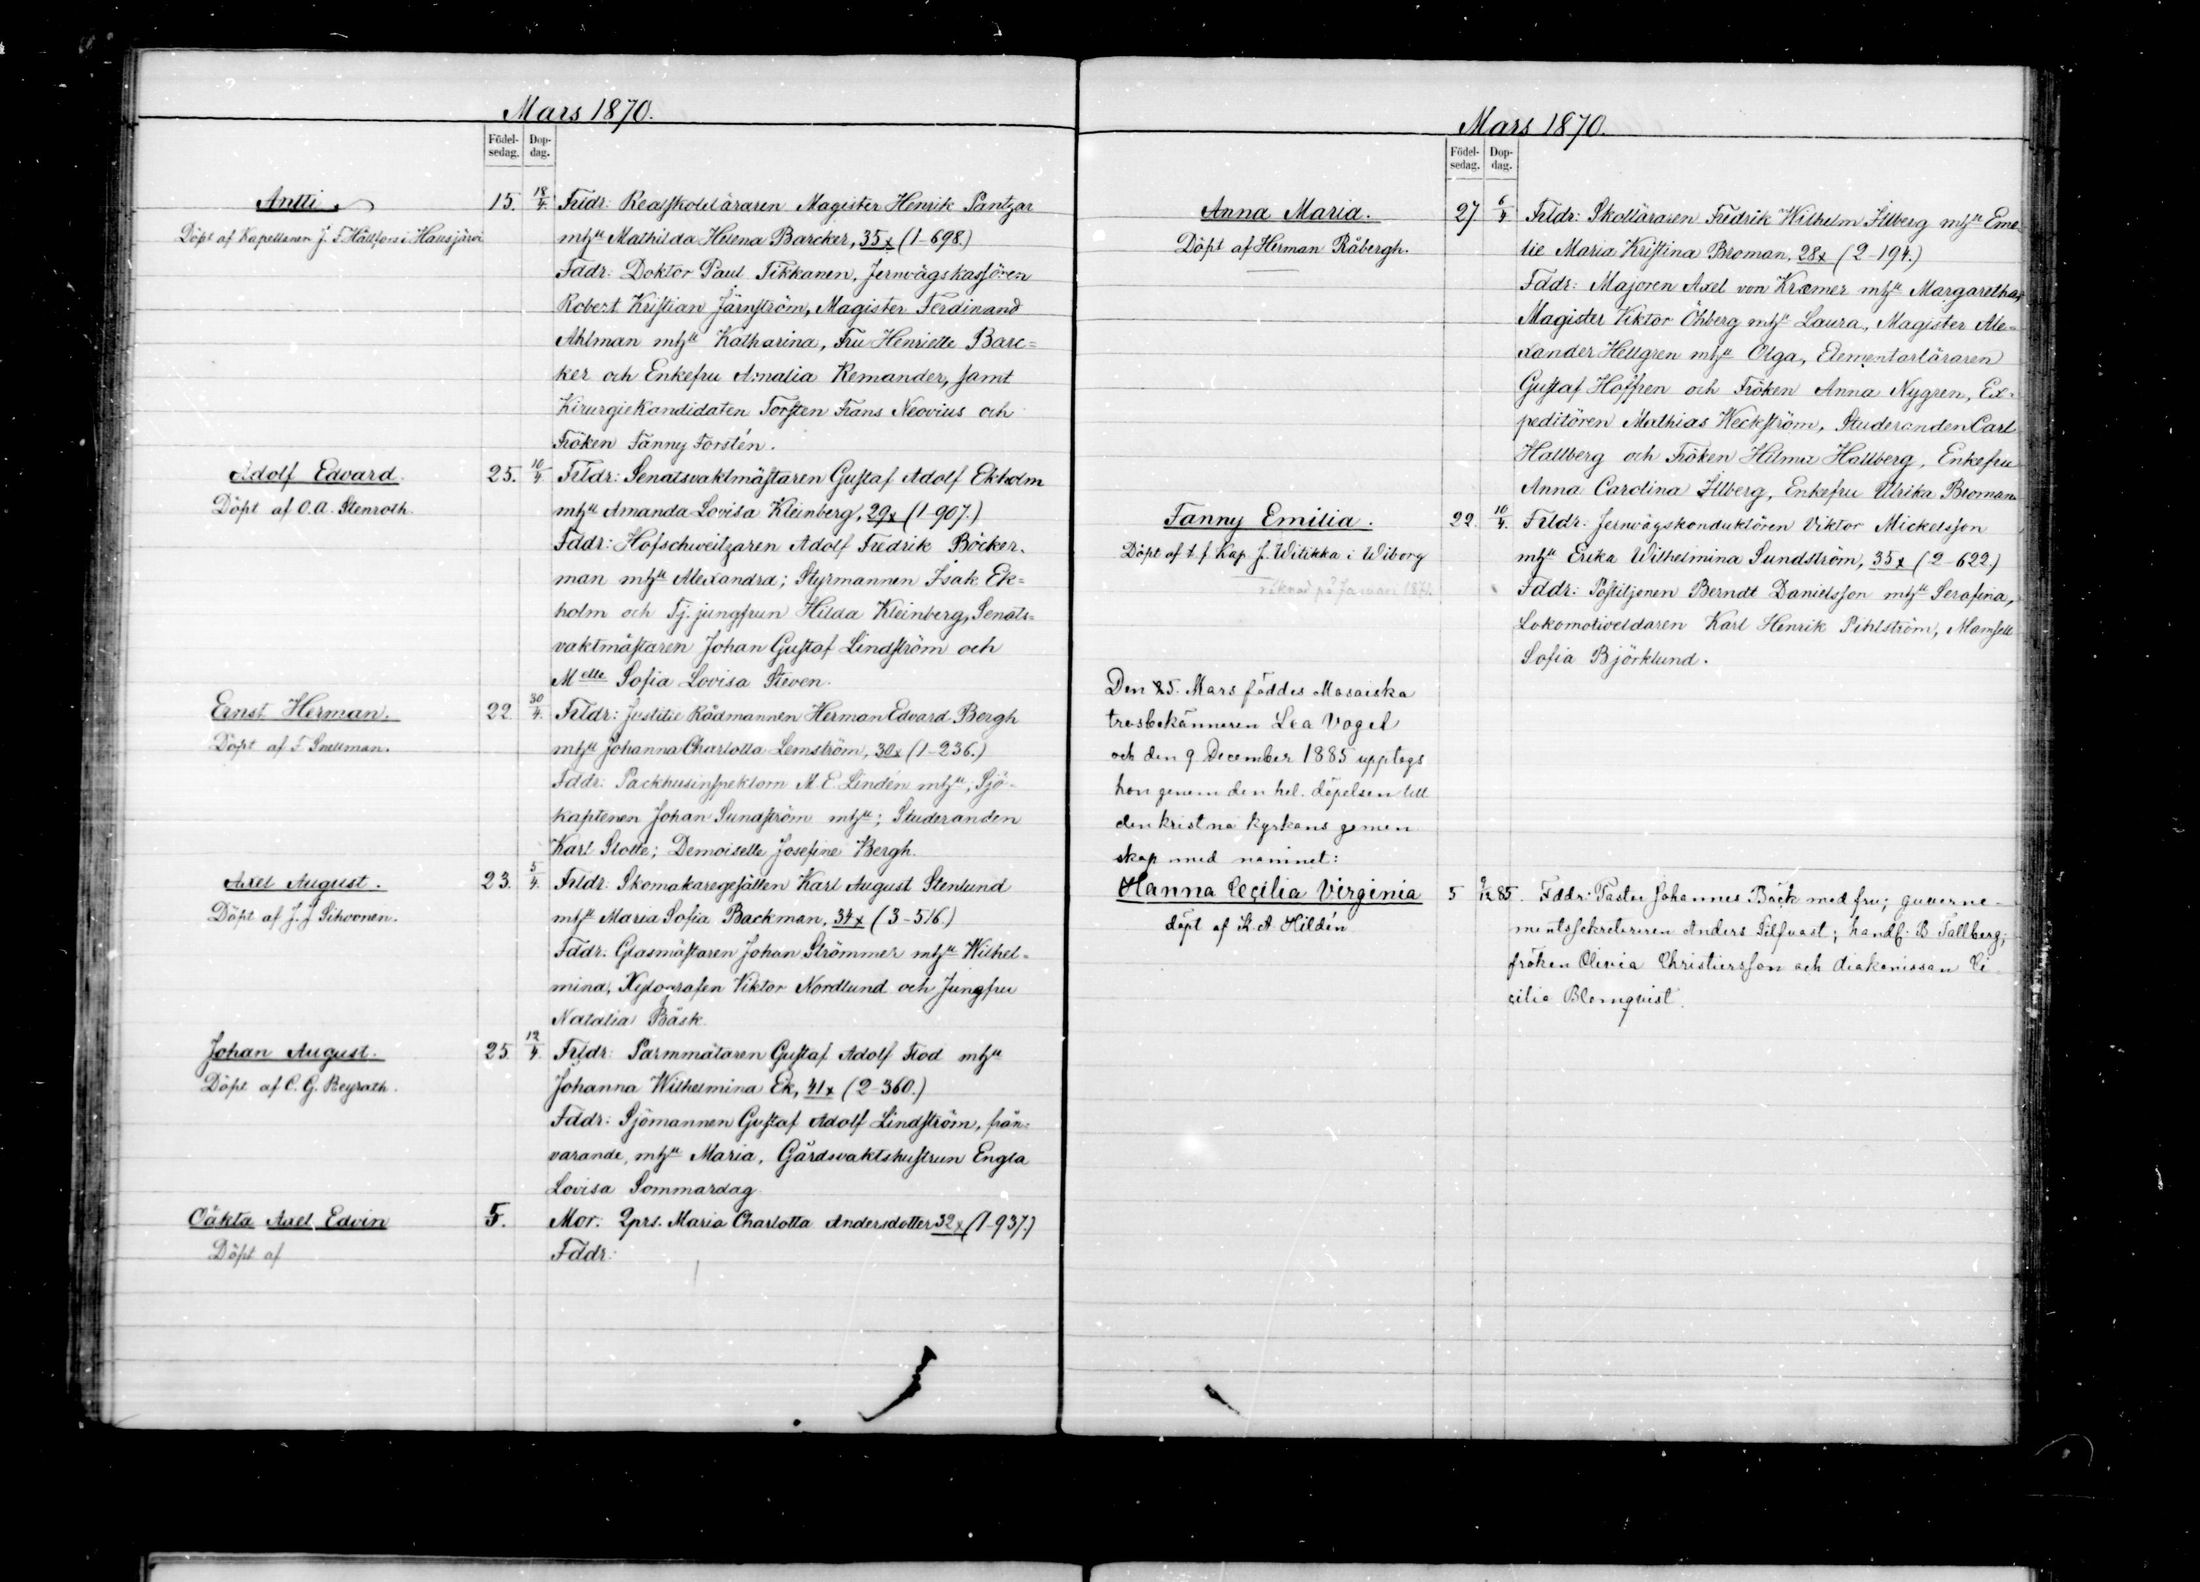 Mars 1870.
Födel-
sedag.
Dop-
dag.
Antti
Döpt af Kapellanen J. F. Hällfors i Hausjärvi
15. 18/4. Frldr: Realskolläraren Magister Henrik Pantzar
mhu Mathilda Helena Barcker, 35x (1-698.)
Fddr: Doktor Paul Tikkanen, Jernvägskassören
Robert Kristian Järnström, Magister Ferdinand
Ahlman mhu Katharina, Fru Henriette Barc=
ker och Enkefru Amalia Remander, samt
Kirurgiekandidaten Torsten Frans Neovius och
Fröken Fanny Forstén.
Adolf Edvard.
Döpt af O.A. Stenroth.
25. 10/4. Frldr: Senatsvaktmästaren Gustaf Adolf Ekholm
mhu Amanda Lovisa Kleinberg, 29x (1-907.)
Fddr: Hofschweitzaren Adolf Fredrik Böcker-
man mhu Alexandra; Styrmannen Isak Ek=
holm och Tj. jungfrun Hilda Kleinberg, Senats=
vaktmästaren Johan Gustaf Lindström och
Melle Sofia Lovisa Steven.
Ernst Herman.
Döpt af F. Snellman.
22. 30/4. Frldr: Justitie Rådmannen Herman Edvard Bergh
mhu Johanna Charlotta Lemström, 30x (1-236.)
Fddr: Packhusinspektorn M. E. Lindén mhu; Sjö-
kaptenen Johan Sundström mhu; Studeranden
Karl Slotte; Demoiselle Josefine Bergh.
Axel August.
Döpt af J. J. Sihvonen.
23. 5/4. Frldr: Skomakaregesällen Karl August Stenlund
mhu Maria Sofia Backman, 34x (3-516.)
Fddr: Glasmästaren Johan Strömmer mhu Wilhel=
mina, Xylografen Viktor Nordlund och Jungfru
Natalia Båsk.
Johan August.
Döpt af C. G. Beyrath.
25. 12/4. Frldr: Parmmätaren Gustaf Adolf Flod mhu
Johanna Wilhelmina Ek, 41x (2-360.)
Fddr: Sjömannen Gustaf Adolf Lindström, från-
varande, mhu Maria, Gårdsvaktshustrun Engla
Lovisa Sommardag.
Oäkta Axel Edvin
Döpt af
5. Mor: Qprs. Maria Charlotta Andersdotter 32x (1-937.)
Fddr:
Mars 1870.
Födel-
sedag.
Dop-
dag.
Anna Maria.
Döpt af Herman Råbergh.
27 6/4 Frldr: Skolläraren Fredrik Wilhelm Illberg mhu Eme
lie Maria Kristina Broman, 28x (2-194.)
Fddr: Majoren Axel von Kræmer mhu Margaretha,
Magister Viktor Öhberg mhu Laura, Magister Ale=
xander Hellgren mhu Olga, Elementarläraren
Gustaf Hoffren och Fröken Anna Nygren, Ex-
peditören Mathias Weckström, Studeranden Carl
Hallberg och Fröken Hilma Hallberg, Enkefru
Anna Carolina Illberg, Enkefru Ulrika Broman.
Fanny Emilia.
Döpt af t. f. Kap. J. Witikka i Wiborg
22. 10/4. Frldr: Jernvägskonduktören Viktor Mickelsson
mhu Erika Wilhelmina Sundström, 35x (2-622.)
Fddr: Postiljonen Berndt Danielsson mhu Serafina,
Lokomotiveldaren Karl Henrik Pihlström, Mamsell
Sofia Björklund.
Den 25. Mars föddes Mosaiska
trosbekännaren Lea Vogel
och den 9 December 1885 upptogs
hon genom den hel. döpelsen till
den kristna kyrkans gemen
skap med namnet:
Hanna Cecilia Virginia
döpt af K. A. Hildén
5 9/12 85. Fddr: Pastor Johannes Bäck med fru; guverne-
mentssekreteraren Anders Silfvast; handl: B. Tallberg;
fröken Olivia Christiersson och diakonissan Ce
cilia Blomqvist.